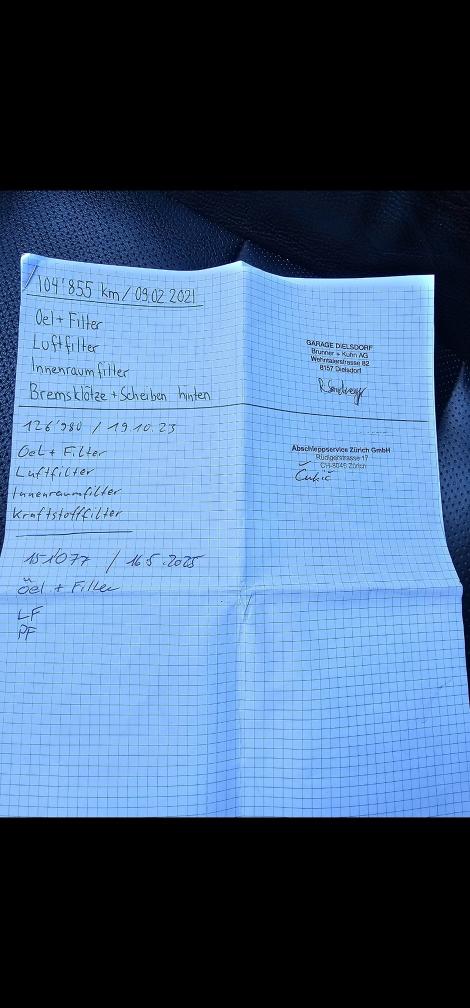 104'855 km / 09.02.2021
Oel + Filter
Luftfilter
Innenraumfilter
Bremsklötze + Scheiben hinten
GARAGE DIELSDORF
Brunner + Kuhn AG
Wehntalerstrasse 82
8157 Dielsdorf
126'980 / 19.10.23
Oel + Filter
Luftfilter
Innenraumfilter
Kraftstofffilter
Abschleppservice Zürich GmbH
Rüdigerstrasse 17
CH-8045 Zürich
151077 / 16.5.2025
öel + Filter
LF
PF